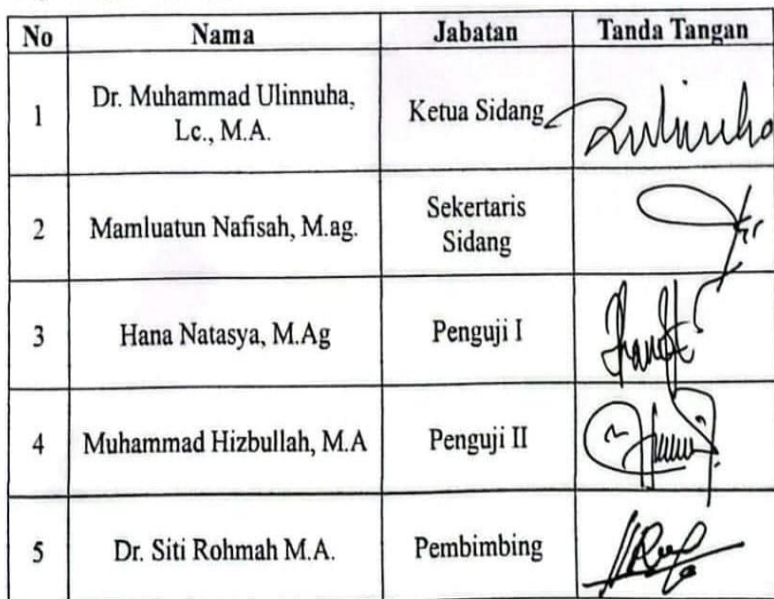 No Nama Jabatan Tanda Tangan
1 Dr. Muhammad Ulinnuha, Ketua Sidang
Lc., M.A.
2 Mamluatun Nafisah, M.ag. Sekertaris
Sidang
3 Hana Natasya, M.Ag Penguji I
4 Muhammad Hizbullah, M.A Penguji II
5 Dr. Siti Rohmah M.A. Pembimbing